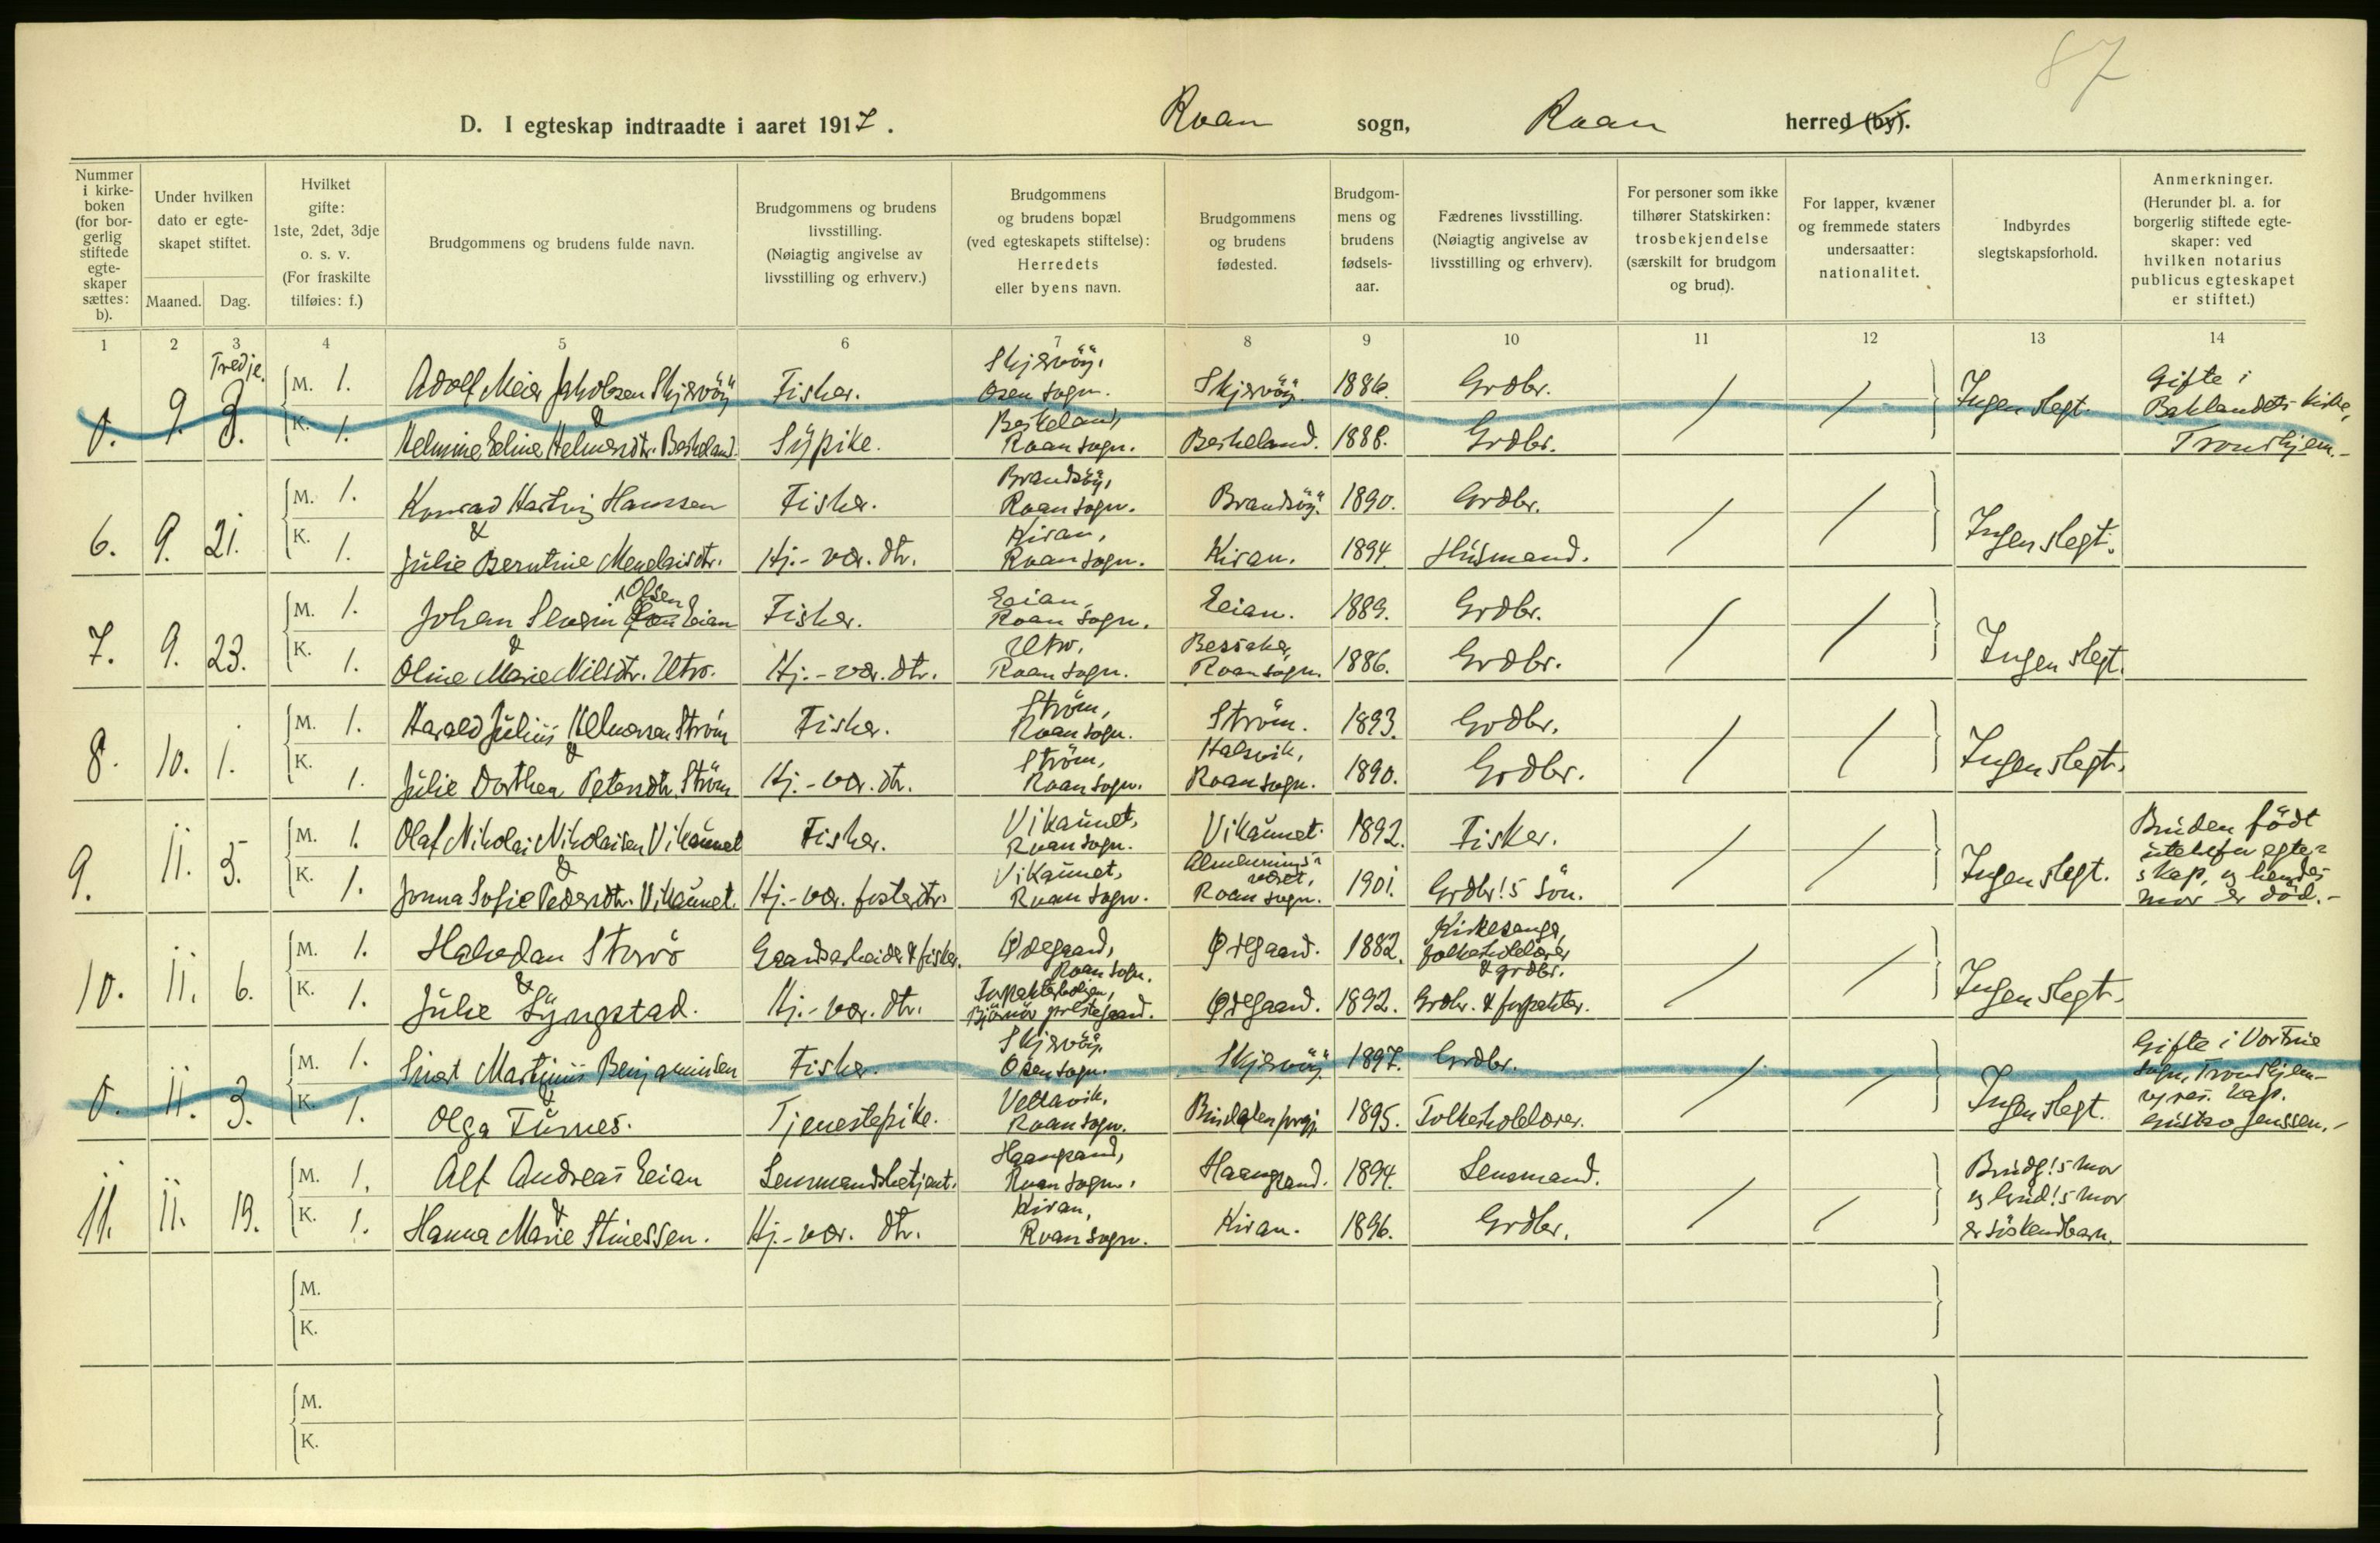 87
D. I egteskap indtraadte i aaret 1917. Roan sogn, Roan herred (by).
Nummer i kirke-boken (for bor-gerlig stiftede egte-skaper sættes: b).
Under hvilken dato er egte-skapet stiftet.
Maaned. Dag.
Hvilket gifte: 1ste, 2det, 3dje o. s. v. (For fraskilte tilføies: f.)
Brudgommens og brudens fulde navn.
Brudgommens og brudens livsstilling. (Nøiagtig angivelse av livsstilling og erhverv.)
Brudgommens og brudens bopæl (ved egteskapets stiftelse): Herredets eller byens navn.
Brudgommens og brudens fødested.
Brudgom-mens og brudens fødsels-aar.
Fædrenes livsstilling. (Nøiagtig angivelse av livsstilling og erhverv).
For personer som ikke tilhører Statskirken: trosbekjendelse (særskilt for brudgom og brud).
For lapper, kvæner og fremmede staters undersaatter: nationalitet.
Indbyrdes slegtskapsforhold.
Anmerkninger. (Herunder bl. a. for borgerlig stiftede egte-skaper: ved hvilken notarius publicus egteskapet er stiftet.)
1 2 3 4 5 6 7 8 9 10 11 12 13 14
Tredje.
0. 9. 3. M. 1. Adolf Meier Jakobsen Skjervöy Fisker. Skjervöy, Osen sogn. Skjervöy. 1886. Grdbr. / / Ingen slegt. Gifte i Baklandets kirke, Trondhjem.-
& K. 1. Helmine Eeline Helmersdtr. Beskeland. Sypike. Beskeland, Roan sogn. Beskeland. 1888. Grdbr.
6. 9. 21. M. 1. Konrad Hartvig Hanssen Fisker. Brandsöy, Roan sogn. Brandsöy. 1890. Grdbr. / / Ingen slegt.
& K. 1. Julie Berntine Mendaisdtr. Hj.-vær. dtr. Kiran, Roan sogn. Kiran. 1894. Husmand.
7. 9. 23. M. 1. Johan Severin Olsen Eeian Fisker. Eeian, Roan sogn. Eeian. 1889. Grdbr. / / Ingen slegt.
& K. 1. Oline Marie Nilsdtr. Utro. Hj.-vær. dtr. Utro, Roan sogn. Bessaker, Roan sogn. 1886. Grdbr.
8. 10. 1. M. 1. Harald Julius Helmersen Ström Fisker. Ström, Roan sogn. Ström. 1893. Grdbr. / / Ingen slegt.
& K. 1. Julie Dorthea Petersdtr. Ström Hj.-vær. dtr. Ström, Roan sogn. Halsvik, Roan sogn. 1890. Grdbr.
9. 11. 5. M. 1. Olaf Nikolai Nikolaisen Vikaunet Fisker. Vikaunet, Roan sogn. Vikaunet. 1892. Fisker. / / Ingen slegt. Bruden födt utenfor egte-skap, og hendes mor er död.-
& K. 1. Jonna Sofie Pedersdtr. Vikaunet. Hj.-vær. fosterdtr. Vikaunet, Roan sogn. Almennings-været, Roan sogn. 1901. Grdbr!s sön.
10. 11. 6. M. 1. Halvdan Storö Gaardsarbeider & fisker. Ødegaard, Roan sogn. Ødegaard. 1882. Kirkesanger, folkeskolelærer & grdbr. / / Ingen slegt.
& K. 1. Julie Lyngstad. Hj.-vær. dtr. Inspektörboligen, Björnör prestegaard. Ødegaard. 1892. Grdbr. & inspektör.
0. 11. 3. M. 1. Sivert Martinus Benjaminsen Fisker. Skjervöy, Osen sogn. Skjervöy. 1897. Grdbr. / / Ingen slegt. Gifte i Vorfrue sogn, Trondhjem- og res. kap. Gustav Jenssen.-
& K. 1. Olga Furnes. Tjenestepike. Vettavik, Roan sogn. Bindalen prgj. 1895. Folkeskolelærer.
11. 11. 19. M. 1. Alf Andreas Eeian Lensmandsbetjent. Haangrand, Roan sogn. Haangrand. 1894. Lensmand. / / Brudg!s mor og brud!s mor er söskendbarn.
& K. 1. Hanna Marie Stinessen. Hj.-vær. dtr. Kiran, Roan sogn. Kiran. 1896. Grdbr.
M.
K.
M.
K.